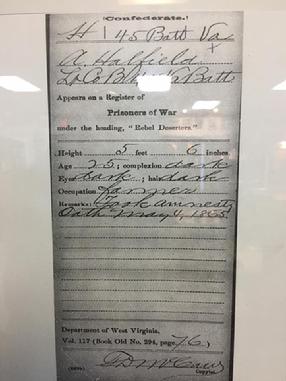 (Confederate.)
H | 45 Batt Va
A Hatfield
Co B 45 Va Batt
Appears on a Register of
Prisoners of War
under the heading, "Rebel Deserters."
Height 5 feet 6 inches.
Age 25; complexion dark
Eyes dark; hair dark
Occupation Farmer
Remarks: Took Amnesty
Oath May 4, 1865
Department of West Virginia.
Vol. 117 (Book Old No. 294, page 76)
Copyist.